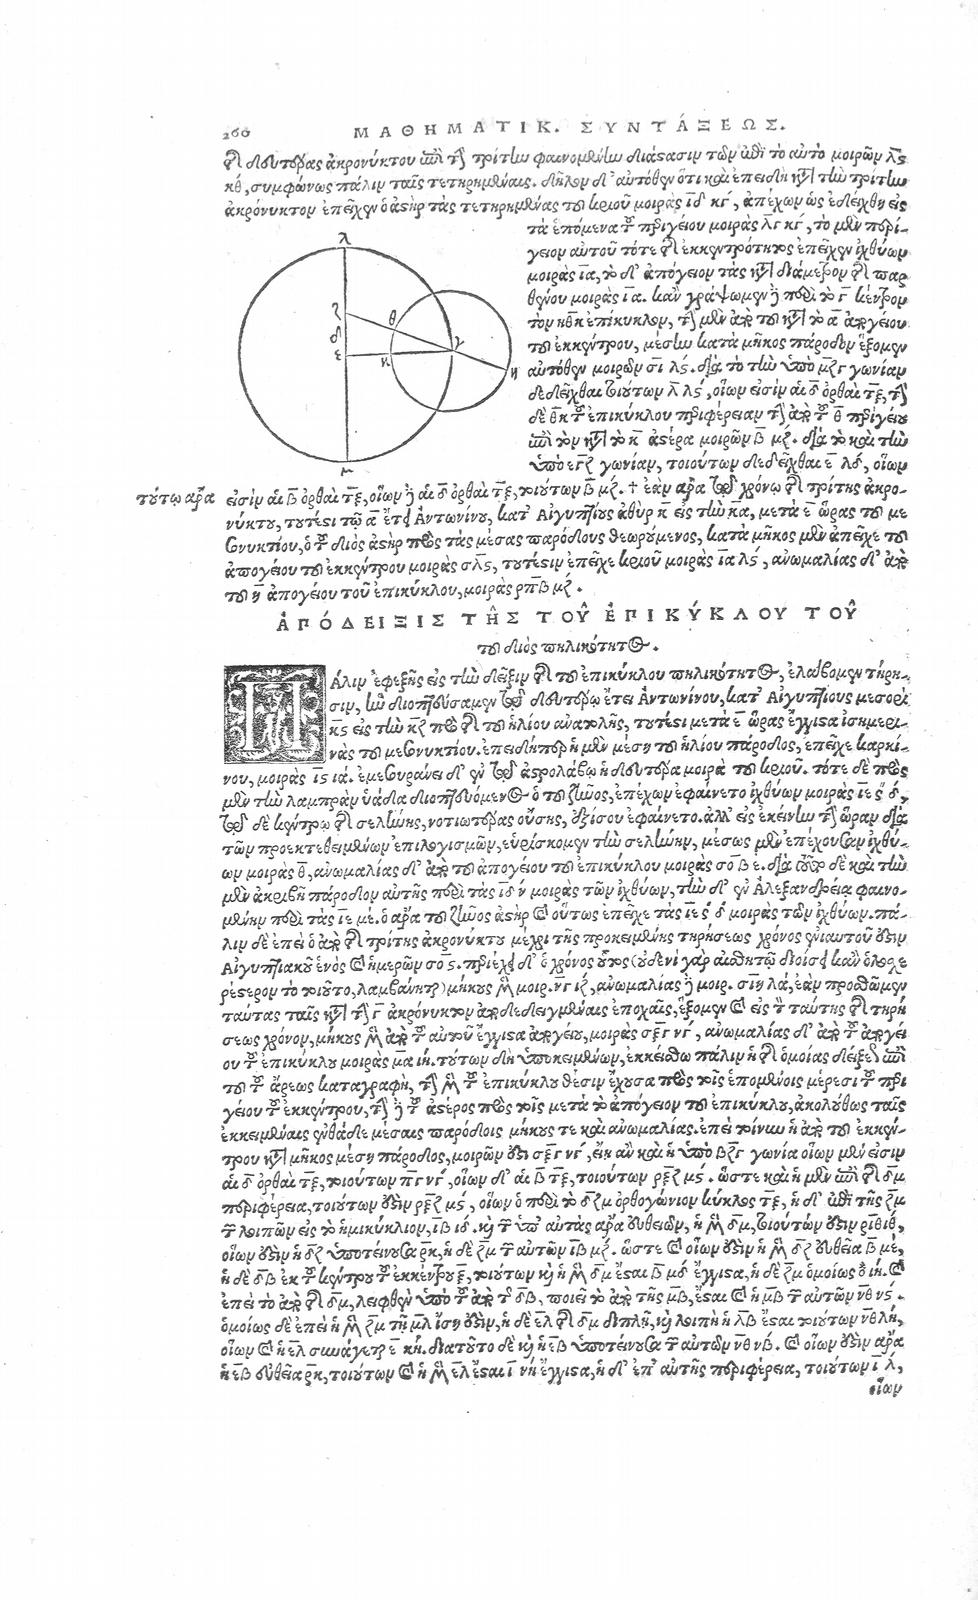 260 ΜΑΘΗΜΑΤΙΚ. ΣΥΝΤΑΞΕΩΣ.
τῆς δευτέρας ἀκρονύκτου ἐπὶ τὴν τρίτην φαινομένην διάστασιν τῶν ἐπὶ τὸ αὐτὸ μοιρῶν λϛ
κθ, συμφώνως πάλιν ταῖς τετηρημέναις. δῆλον δ' αὐτόθεν ὅτι καὶ ἐπειδὴ κατὰ τὴν τρίτην
ἀκρόνυκτον ἐπεῖχεν ὁ ἀστὴρ τὰς τετηρημένας τοῦ κριοῦ μοίρας ιδ κγ, ἀπέχων ὡς ἐδείχθη εἰς
τὰ ἑπόμενα τοῦ περιγείου μοίρας λγ κγ, τὸ μὲν περί-
γειον αὐτοῦ τότε τῆς ἐκκεντρότητος ἐπεῖχεν ἰχθύων
μοίρας ια, τὸ δ' ἀπόγειον τὰς κατὰ διάμετρον τῆς παρ
θένου μοίρας ια. κἂν γράψωμεν δὲ περὶ τὸ γ κέντρον
τὸν ηθκ ἐπίκυκλον, τὴν μὲν ἀπὸ τοῦ κατὰ τὸ λ ἀπογείου
τοῦ ἐκκέντρου, μέσην κατὰ μῆκος πάροδον ἕξομεν
αὐτόθεν μοιρῶν σι λϛ. διὰ τὸ τὴν ὑπὸ μζγ γωνίαν
δεδεῖχθαι τοιούτων λ λϛ, οἵων εἰσὶν αἱ δ ὀρθαὶ τξ, τὴν
δὲ θκ τοῦ ἐπικύκλου περιφέρειαν τὴν ἀπὸ τοῦ θ περιγείου
ἐπὶ τὸν κατὰ τὸ κ ἀστέρα μοιρῶν β μζ. διὰ τὸ καὶ τὴν
ὑπὸ εγζ γωνίαν, τοιούτων δεδεῖχθαι ε λδ, οἵων
τούτῳ ἄρα
εἰσὶν αἱ β ὀρθαὶ τξ, οἵων δὲ αἱ δ ὀρθαὶ τξ, τοιούτων β μζ. † ἐὰν ἄρα τῷ χρόνῳ τῆς τρίτης ἀκρο-
νύκτου, τουτέστι τῷ α ἔτει Ἀντωνίνου, κατ' Αἰγυπτίους ἀθὺρ κ εἰς τὴν κα, μετὰ ε ὥρας τοῦ με
σονυκτίου, ὁ τοῦ διὸς ἀστὴρ πρὸς τὰς μέσας παρόδους θεωρούμενος, κατὰ μῆκος μὲν ἀπεῖχε τοῦ
ἀπογείου τοῦ ἐκκέντρου μοίρας σλϛ, τουτέστιν ἐπεῖχε κριοῦ μοίρας ια λϛ, ἀνωμαλίας δ' ἀπὸ
τοῦ η ἀπογείου τοῦ ἐπικύκλου, μοίρας ρπβ μζ.
ἈΠΌΔΕΙΞΙΣ ΤΗ͂Σ ΤΟΥ͂ ἘΠΙΚΎΚΛΟΥ ΤΟΥ͂
τοῦ διὸς πηλικότητος.
Πάλιν ἐφεξῆς εἰς τὴν δεῖξιν τῆς τοῦ ἐπικύκλου πηλικότητος, ἐλάβομεν τήρη-
σιν, ἣν διωπτεύσαμεν τῷ δευτέρῳ ἔτει Ἀντωνίνου, κατ' Αἰγυπτίους μεσορὲ
κϛ εἰς τὴν κζ πρὸ τῆς τοῦ ἡλίου ἀνατολῆς, τουτέστι μετὰ ε ὥρας ἔγγιστα ἰσημερι-
νὰς τοῦ μεσονυκτίου. ἐπειδήπερ ἡ μὲν μέση τοῦ ἡλίου πάροδος, ἐπεῖχε καρκί-
νου, μοίρας ιϛ ια. ἐμεσουράνει δ' ἐν τῷ ἀστρολάβῳ ἡ δευτέρα μοῖρα τοῦ κριοῦ. τότε δὲ πρὸς
μὲν τὴν λαμπρὰν ὑάδα διοπτευόμενος ὁ τοῦ ζηνὸς, ἐπέχων ἐφαίνετο ἰχθύων μοίρας ιε ϛ δ,
τῷ δὲ κέντρῳ τῆς σελήνης, νοτιωτέρας οὔσης, ἐξ ἴσου ἐφαίνετο. ἀλλ' εἰς ἐκείνην τὴν ὥραν διὰ
τῶν προεκτεθειμένων ἐπιλογισμῶν, εὑρίσκομεν τὴν σελήνην, μέσως μὲν ἐπέχουσαν ἰχθύ-
ων μοίρας θ, ἀνωμαλίας δ' ἀπὸ τοῦ ἀπογείου τοῦ ἐπικύκλου μοίρας σοβ ε. διὰ τοῦτο δὲ καὶ τὴν
μὲν ἀκριβῆ πάροδον αὐτῆς περὶ τὰς ιδ ν μοίρας τῶν ἰχθύων, τὴν δ' ἐν Ἀλεξανδρείᾳ φαινο-
μένην περὶ τὰς ιε με. ὁ ἄρα τοῦ ζηνὸς ἀστὴρ καὶ οὕτως ἐπεῖχε τὰς ιε ϛ δ μοίρας τῶν ἰχθύων. πά-
λιν δὲ ἐπεὶ ὁ ἀπὸ τῆς τρίτης ἀκρονύκτου μέχρι τῆς προκειμένης τηρήσεως χρόνος ἐνιαυτοῦ ἐστιν
Αἰγυπτιακοῦ ἑνὸς καὶ ἡμερῶν σοϛ. περιέχει δ' ὁ χρόνος οὗτος (οὐδενὶ γὰρ αἰσθητῷ διοίσει κἂν ὁλοσχε
ρέστερον τὸ τοιοῦτο, λαμβάνηται) μήκους μὲν μοιρ. νγ ιζ, ἀνωμαλίας δὲ μοιρ. σιη λα, ἐὰν προσθῶμεν
ταύτας ταῖς κατὰ τὴν γ ἀκρόνυκτον ἀποδεδειγμέναις ἐποχαῖς, ἕξομεν καὶ εἰς τὸν ταύτης τῆς τηρή
σεως χρόνον, μήκους μὲν ἀπὸ τοῦ αὐτοῦ ἔγγιστα ἀπογείου, μοίρας σξγ νγ, ἀνωμαλίας δ' ἀπὸ τοῦ ἀπογεί
ου τοῦ ἐπικύκλου μοίρας μα ιη. τούτων δὴ ὑποκειμένων, ἐκκείσθω πάλιν ἡ τῆς ὁμοίας δείξεως ἐπὶ
τοῦ τοῦ ἄρεως καταγραφὴ, τὴν μὲν τοῦ ἐπικύκλου θέσιν ἔχουσα πρὸς τοῖς ἑπομένοις μέρεσι τοῦ περι
γείου τοῦ ἐκκέντρου, τὴν δὲ τοῦ ἀστέρος πρὸς τοῖς μετὰ τὸ ἀπόγειον τοῦ ἐπικύκλου, ἀκολούθως ταῖς
ἐκκειμέναις ἐνθάδε μέσαις παρόδοις μήκους τε καὶ ἀνωμαλίας. ἐπεὶ τοίνυν ἡ ἀπὸ τοῦ ἐκκέν-
τρου κατὰ μῆκος μέση πάροδος, μοιρῶν ἐστι σξγ νγ, εἴη ἂν καὶ ἡ ὑπὸ βζγ γωνία οἵων μέν εἰσιν
αἱ δ ὀρθαὶ τξ, τοιούτων πγ νγ, οἵων δ' αἱ β τξ, τοιούτων ρξζ μϛ. ὥστε καὶ ἡ μὲν ἐπὶ τῆς δμ
περιφέρεια, τοιούτων ἐστὶν ρξζ μϛ, οἵων ὁ περὶ τὸ δζμ ὀρθογώνιον κύκλος τξ, ἡ δ' ἐπὶ τῆς ζμ
τῶν λοιπῶν εἰς τὸ ἡμικύκλιον, ιβ ιδ. καὶ τῶν ὑπ' αὐτὰς ἄρα εὐθειῶν, ἡ μὲν δμ, τοιούτων ἐστὶν ριθ ιθ,
οἵων ἐστὶν ἡ δζ ὑποτείνουσα ρκ, ἡ δὲ ζμ τῶν αὐτῶν ιβ μζ. ὥστε καὶ οἵων ἐστὶν ἡ μὲν δζ εὐθεῖα β με,
ἡ δὲ δβ ἐκ τοῦ κέντρου τοῦ ἐκκέντρου ξ, τοιούτων καὶ ἡ μὲν δμ ἔσται β μδ ἔγγιστα, ἡ δὲ ζμ ὁμοίως ο ιη. καὶ
ἐπεὶ τὸ ἀπὸ τῆς δμ, λειφθὲν ὑπὸ τοῦ ἀπὸ τῆς δβ, ποιεῖ τὸ ἀπὸ τῆς μβ, ἔσται καὶ ἡ μβ τῶν αὐτῶν νθ νϛ.
ὁμοίως δὲ ἐπεὶ ἡ μὲν ζμ τῇ μλ ἴση ἐστὶν, ἡ δὲ ελ τῆς δμ διπλῆ, καὶ λοιπὴ ἡ λβ ἔσται τοιούτων νθ λη,
οἵων καὶ ἡ ελ συνάγεται ε κη. διὰ τοῦτο δὲ καὶ ἡ εβ ὑποτείνουσα τῶν αὐτῶν νθ νβ. καὶ οἵων ἐστὶν ἄρα
ἡ εβ εὐθεῖα ρκ, τοιούτων καὶ ἡ μὲν ελ ἔσται ι νη ἔγγιστα, ἡ δ' ἐπ' αὐτῆς περιφέρεια, τοιούτων ι λ,
οἵων
λ
ζ
δ
ε
θ
κ
γ
η
μ